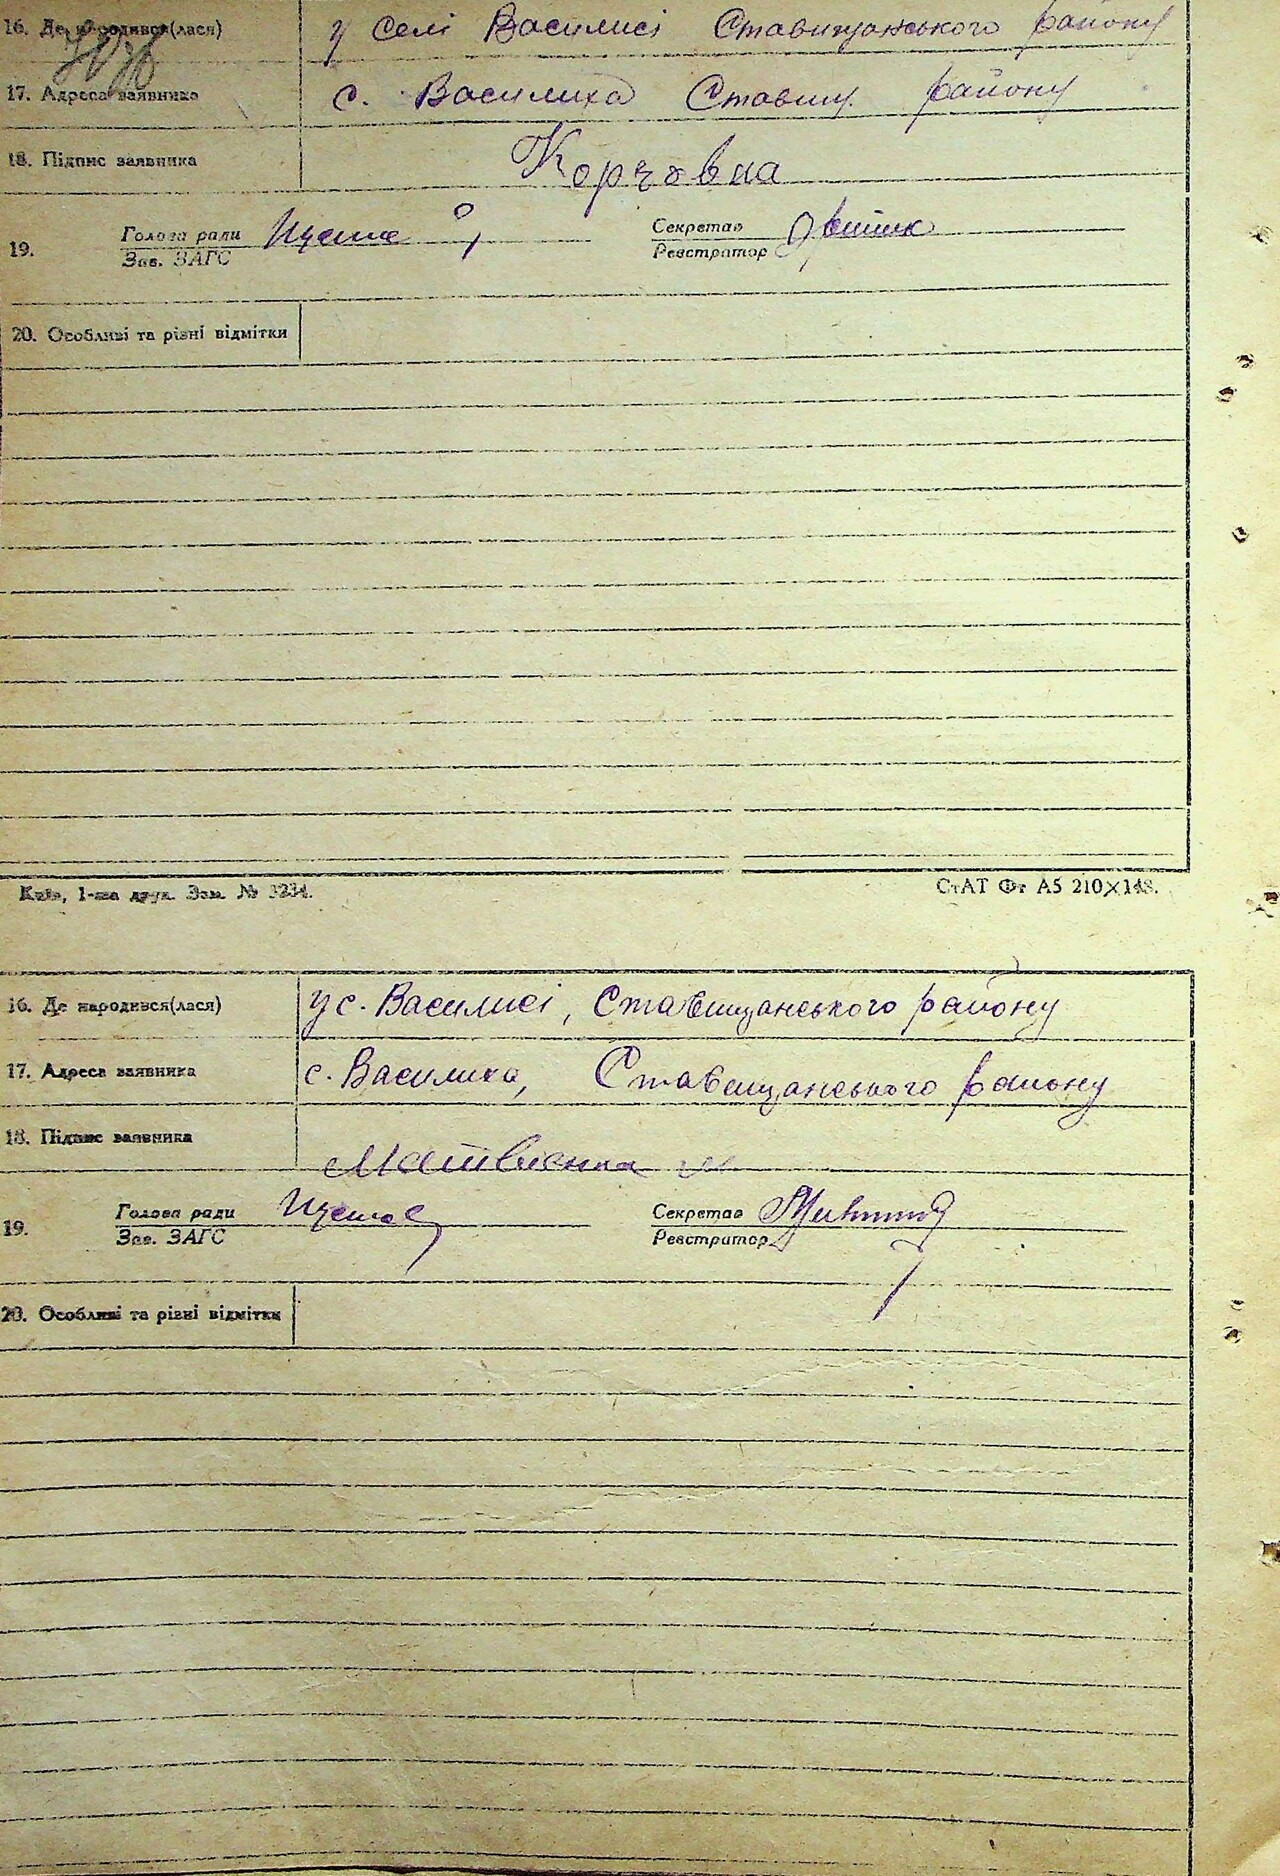 16. Де народився(лася) у селі Василисі Ставищанського району
17. Адреса заявника с. Василиха Ставищ. району
18. Підпис заявника Корчовна
19. Голова ради Секретар
Зав. ЗАГС Реєстратор
20. Особливі та різні відмітки
Київ, 1-ша друк. Зам. № 3234. СтАТ Фт А5 210×148.
16. Де народився(лася) у с. Василисі, Ставищанського району
17. Адреса заявника с. Василиха, Ставищанського району
18. Підпис заявника Матвієнка
19. Голова ради Секретар
Зав. ЗАГС Реєстратор
20. Особливі та різні відмітки